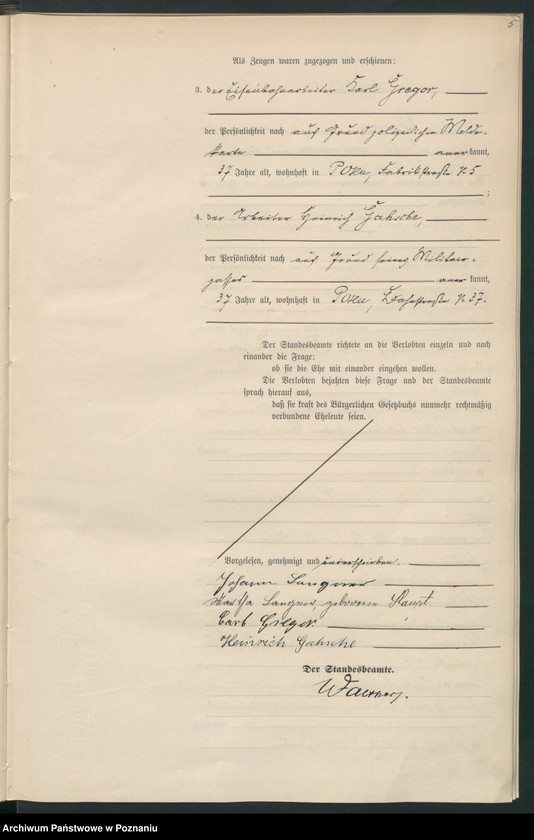 5
Als Zeugen waren zugezogen und erschienen:
3. der Eisenbahnarbeiter Karl Gregor,
der Persönlichkeit nach auf Grund polizeilicher Melde-
karte anerkannt,
37 Jahre alt, wohnhaft in Posen, Fabrikstraße No 5
;
4. der Arbeiter Heinrich
der Persönlichkeit nach auf Grund seines Militair-
passes anerkannt,
37 Jahre alt, wohnhaft in Posen, No 37.
Der Standesbeamte richtete an die Verlobten einzeln und nach
einander die Frage:
ob sie die Ehe mit einander eingehen wollen.
Die Verlobten bejahten diese Frage und der Standesbeamte
sprach hierauf aus,
daß sie kraft des Bürgerlichen Gesetzbuchs nunmehr rechtmäßig
verbundene Eheleute seien.
Vorgelesen, genehmigt und unterschrieben.
Johann Langner
Martha Langner geborene Haupt.
Carl Gregor
Heinrich
Der Standesbeamte.
Archiwum Państwowe w Poznaniu